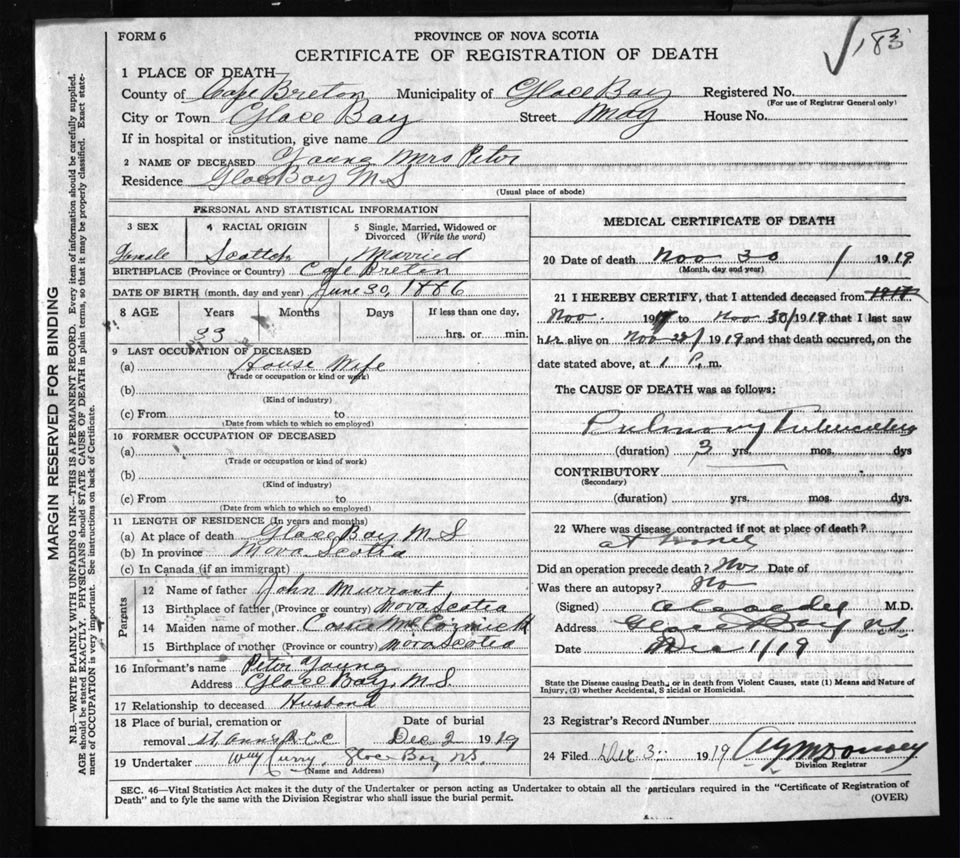 FORM 6
PROVINCE OF NOVA SCOTIA
183
CERTIFICATE OF REGISTRATION OF DEATH
1 PLACE OF DEATH
County of Cape Breton Municipality of Glace Bay Registered No.
(For use of Registrar General only)
City or Town Glace Bay Street May House No.
If in hospital or institution, give name
2 NAME OF DECEASED Young Mrs Peter
Residence Glace Bay N.S
(Usual place of abode)
PERSONAL AND STATISTICAL INFORMATION
3 SEX 4 RACIAL ORIGIN 5 Single, Married, Widowed or
Divorced (Write the word)
Female Scottch Married
BIRTHPLACE (Province or Country) Cape Breton
DATE OF BIRTH (month, day and year) June 30, 1886
8 AGE Years Months Days If less than one day,
33 hrs. or min.
9 LAST OCCUPATION OF DECEASED
(a) House Wife
(Trade or occupation or kind or work)
(b)
(Kind of industry)
(c) From to
(Date from which to which so employed)
10 FORMER OCCUPATION OF DECEASED
(a)
(Trade or occupation or kind of work)
(b)
(Kind of industry)
(c) From to
(Date from which to which so employed)
11 LENGTH OF RESIDENCE (In years and months)
(a) At place of death Glace Bay N S
(b) In province Nova Scotia
(c) In Canada (if an immigrant)
Parents
12 Name of father John Murrant
13 Birthplace of father (Province or country) Nova Scotia
14 Maiden name of mother McCormick
15 Birthplace of mother (Province or country) Nova Scotia
16 Informant's name Peter Young
Address Glace Bay, N.S.
17 Relationship to deceased Husband
18 Place of burial, cremation or Date of burial
removal St. Anns R.C.C Dec 2 1919
19 Undertaker Curry, Glace Bay N.S.
(Name and Address)
MEDICAL CERTIFICATE OF DEATH
20 Date of death Nov 30 / 1919
(Month, day and year)
21 I HEREBY CERTIFY, that I attended deceased from
Nov. 19 to Nov 30/1919 that I last saw
her alive on Nov 1919 and that death occurred, on the
date stated above, at 1 P. m.
The CAUSE OF DEATH was as follows:
Pulmonary Tuberculosis
(duration) 3 yrs. mos. dys
CONTRIBUTORY
(Secondary)
(duration) yrs. mos. dys.
22 Where was disease contracted if not at place of death?
at home
Did an operation precede death? No Date of
Was there an autopsy? No
(Signed) M.D.
Address Glace Bay N.S.
Date Dec 1/19
State the Disease causing Death, or in death from Violent Causes, state (1) Means and Nature of
Injury, (2) whether Accidental, Suicidal or Homicidal.
23 Registrar's Record Number
24 Filed Dec 3 1919
Division Registrar
SEC. 46—Vital Statistics Act makes it the duty of the Undertaker or person acting as Undertaker to obtain all the particulars required in the "Certificate of Registration of
Death" and to fyle the same with the Division Registrar who shall issue the burial permit. (OVER)
MARGIN RESERVED FOR BINDING
N.B.—WRITE PLAINLY WITH UNFADING INK—THIS IS A PERMANENT RECORD. Every item of information should be carefully supplied.
AGE should be stated EXACTLY. PHYSICIANS should STATE CAUSE OF DEATH in plain terms, so that it may be properly classified. Exact state-
ment of OCCUPATION is very important. See instructions on back of Certificate.